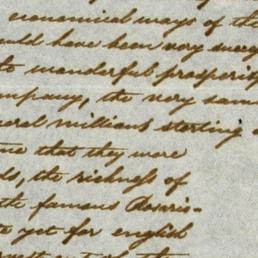 economical ways of the
ould have been very success
to wonderful prosperity
ompany, the very same
eral millions sterling
me that they were
ds, the richness of
the famous Rosaris-
te yet for english